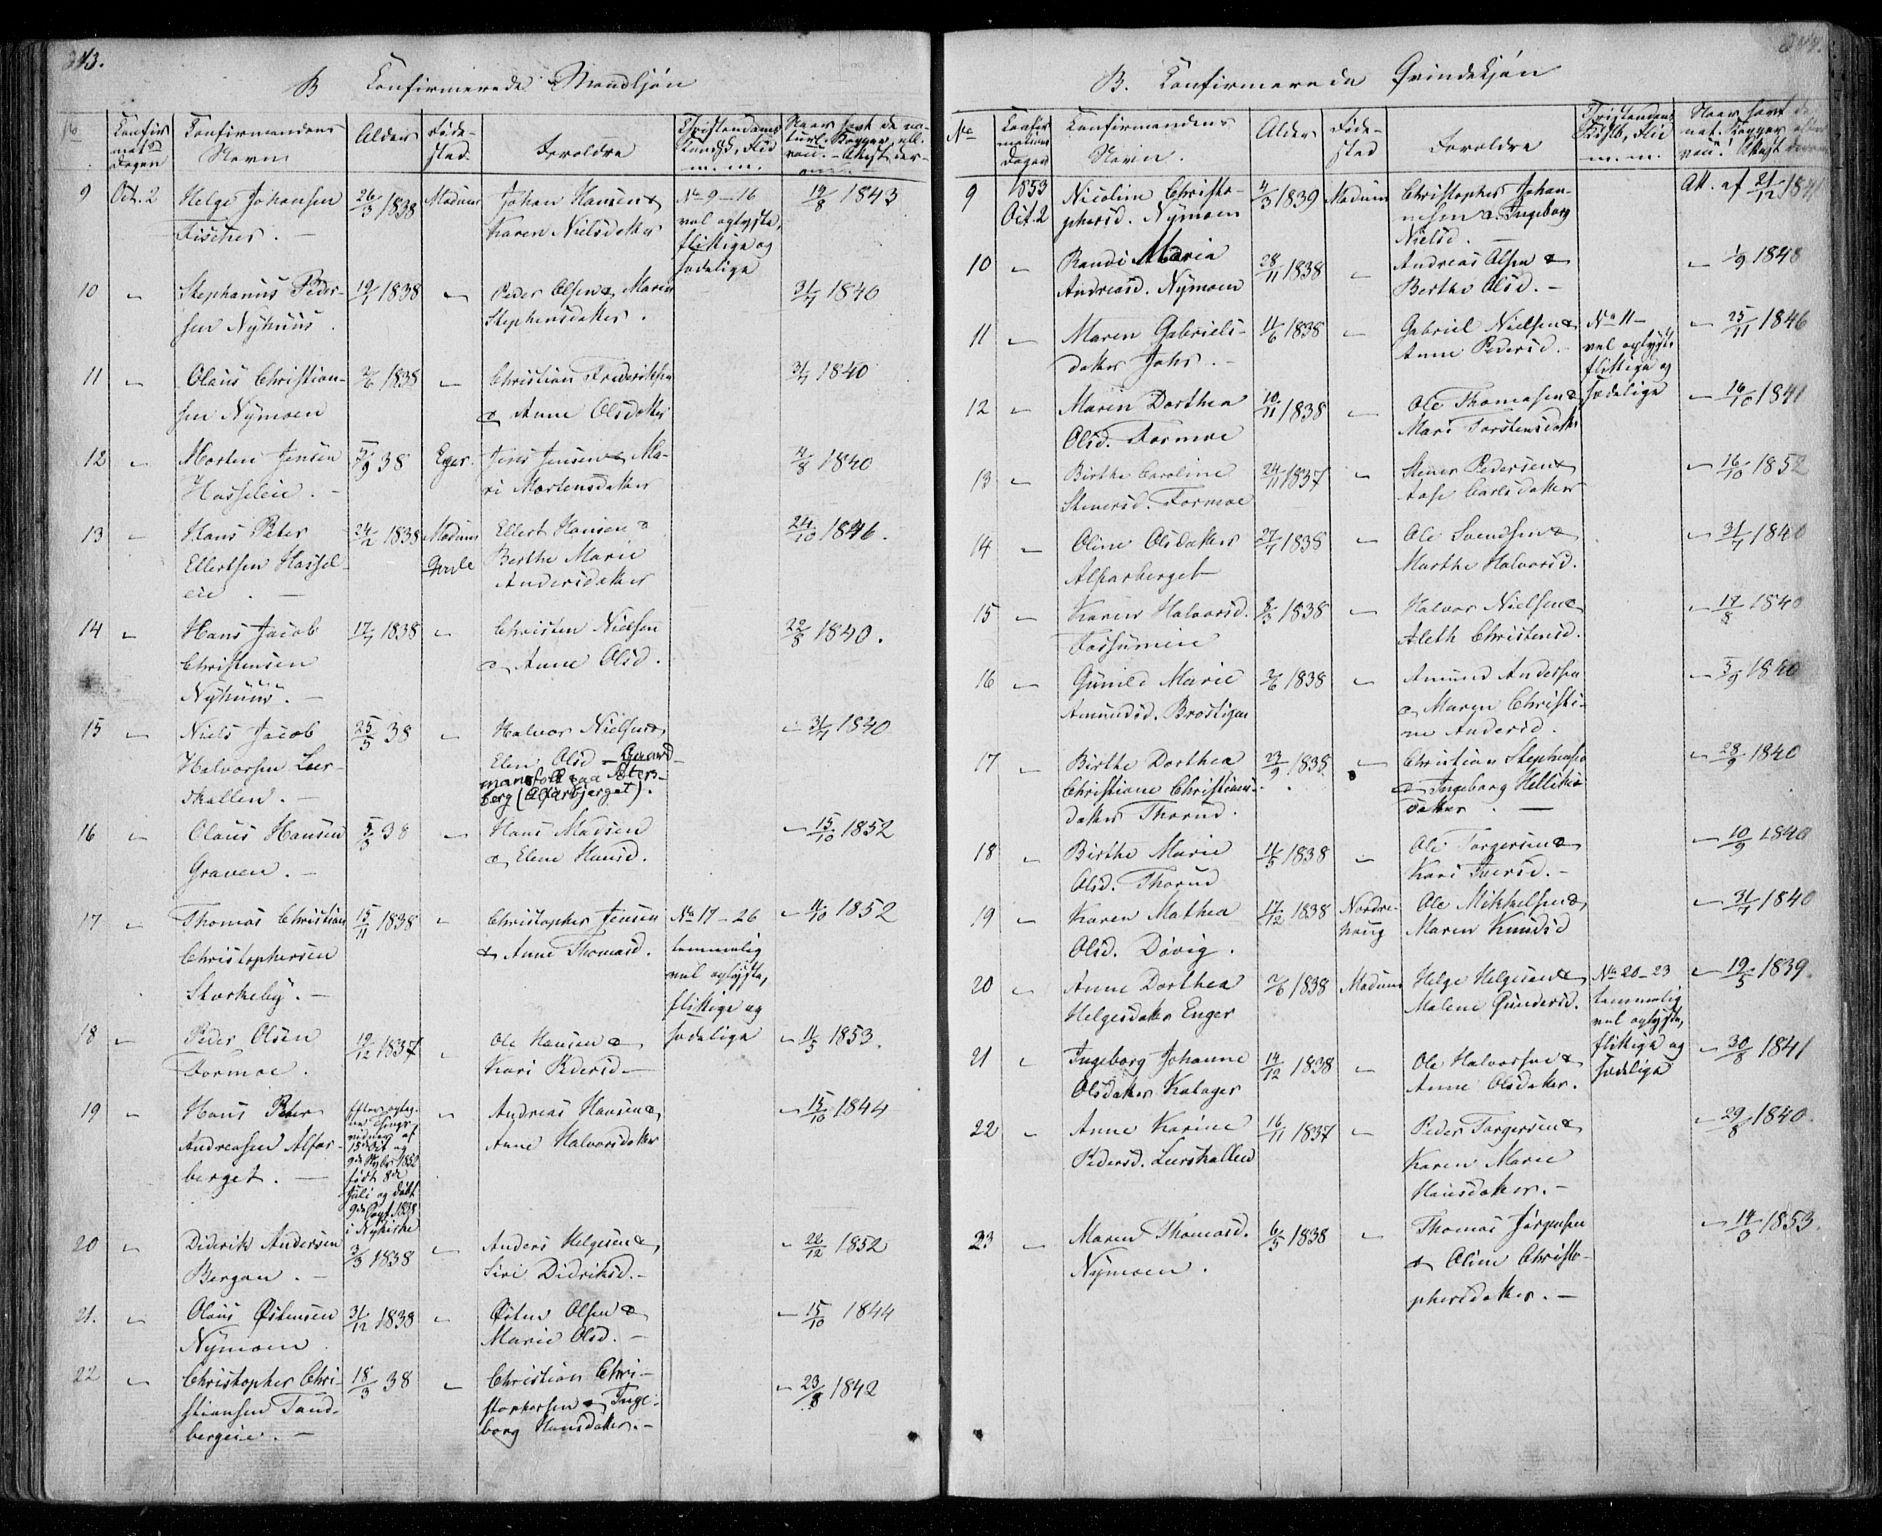 343.
B Confirmerede Mandkjøn
Confirmations Dagen
Confirmandens Navn
Alder
Føde-sted.
Forældre
Christendoms Kundsk, Flid m. m.
9 Oct. 2 Helge Johansen Fischer. — 26/3 1838 Modum Johan Hansen & Karen Nielsdatter No 9-16 vel oplyste, flittige og sædelige 19/8 1843
10 " Stephanus Peder-sen Nyhuus. 1838 " Peder Olsen & Maren Stephensdatter. 31/7 1840
11 " Olaus Christian-sen Nymoen 2/6 1838 " Christian Frederiksen & Anne Olsdatter 31/7 1840
12 " Morten Jensen Hasseleie. — 5/9 38 Eger. Jens Jensen & Ma-ri Mortensdatter 4/8 1840
13 " Hans Peter Ellertsen Hassel-eie. — 24/2 1838 Modum Ellert Hansen & Berthe Marie Andersdatter 24/10 1846.
14 " Hans Jacob Christensen Nyhuus. — 17/7 1838 " Christen Nielsen & Anne Olsd. 22/8 1840.
15 " Niels Jacob Halvorsen Leer-skallen. — 25/5 38 " Halvor Nielsen & Elen Olsd — Gaard-mansfolk paa Alfars-berg (Alfarbjerget). " 31/7 1840
16 " Olaus Hansen Graven. — 5/3 38 " Hans Madsen & Elene Hansd. " 15/10 1852
17 " Thomas Christian Christophersen Storkeby. — 15/11 1838 " Christopher Jensen & Anne Thomasd. No 17-26 temmelig vel oplyste, flittige og sædelige " 11/10 1852
18 " Peder Olsen Formoe. 19/12 1837 " Ole Hansen & Kari Pedersd — " 11/3 1853.
19 " Hans Peter Andreasen Alfar-berget. — født 8de Juli og døbt 9de Sept. 1838 i Nykirke " Andreas Hansen & Anne Halvorsdatter " 15/10 1844
20 " Diderik Andersen Bergan. — 3/3 1838 " Anders Helgesen & Siri Didriksd. — " 22/12 1852
21. " Olaus Østensen Nymoen. 31/12 1838 " Østen Olsen & Marie Olsd. — " 15/10 1844
22 " Christopher Chri-stiansen Tand-bergeie. — 18/3 38 " Christian Chri-stophersen & Inge-borg Hansdatter. — " 23/8 1842
344.
B. Confirmerede Qvindekjøn
No
Confirmations Dagen
Confirmandens Navn.
Alder
Føde-sted
Forældre
9 1853 Oct. 2 Nicoline Christo-phersd. Nymoen 4/3 1839 Modum Christopher Johan-nesen & Ingeborg Nielsd. — Att. af 21/12 1841
10 " Randi Maria Andreasd. Nymoen 28/11 1838 " Andreas Olsen & Berthe Olsd. — " 1/9 1848
11 " Maren Gabriels-datter Johs. — 11/6 1838 " Gabriel Nielsen & Anne Pedersd. — No 11 — vel oplyste flittige og sædelige " 25/11 1846
12 " Maren Dorthea Olsd. Formoe 10/11 1838 " Ole Thomasen & Mari Torstensdatter " 16/10 1841
13 " Birthe Caroline Stenersd. Formoe 24/11 1837 " Stener Pedersen & Aase Carlsdatter " 16/10 1852
14 " Oline Olsdatter Alfarberget 27/7 1838 " Ole Svendsen & Marthe Halvorsd. " 31/7 1840
15 " Karen Halvorsd. Fossumeie 8/3 1838 " Halvor Nielsen & Aleth Christensd. " 17/8 1840
16 " Gunild Marie Amundsd. Brostigen 2/6 1838 " Amund Andersen & Maren Christi-ne Andersd. " 5/9 1840
17 " Birthe Dorthea Christiane Christians-datter Thorud. 23/9 1838. " Christian Stephensen & Ingeborg Helliks-datter. — " 28/9 1840
18 " Birthe Marie Olsd. Thorud 11/5 1838 " Ole Torgersen & Kari Iversd. — " 10/9 1840
19 " Karen Mathea Olsd. Døvig. 17/12 1838 Nordre-houg Ole Mikkelsen & Maren Knudsd " 31/7 1840
20 " Anne Dorthea Helgesdatter Enger 2/6 1838 Modum Helge Helgesen & Malene Gundersd. No 20-23 temmelig vel oplyste, flittige og sædelige " 19/5 1839.
21 " Ingeborg Johanne Olsdatter Kalager 14/12 1838 " Ole Halvorsen & Anne Olsdatter. " 30/8 1841
22 " Anne Karine Pedersd. Leerskallen 16/11 1837 " Peder Torgersen & Karen Marie Hansdatter. — " 29/8 1840.
23 " Maren Thomasd. Nymoen. 6/5 1838 " Thomas Jørgensen & Oline Christo-phersdatter. — " 14/3 1853.